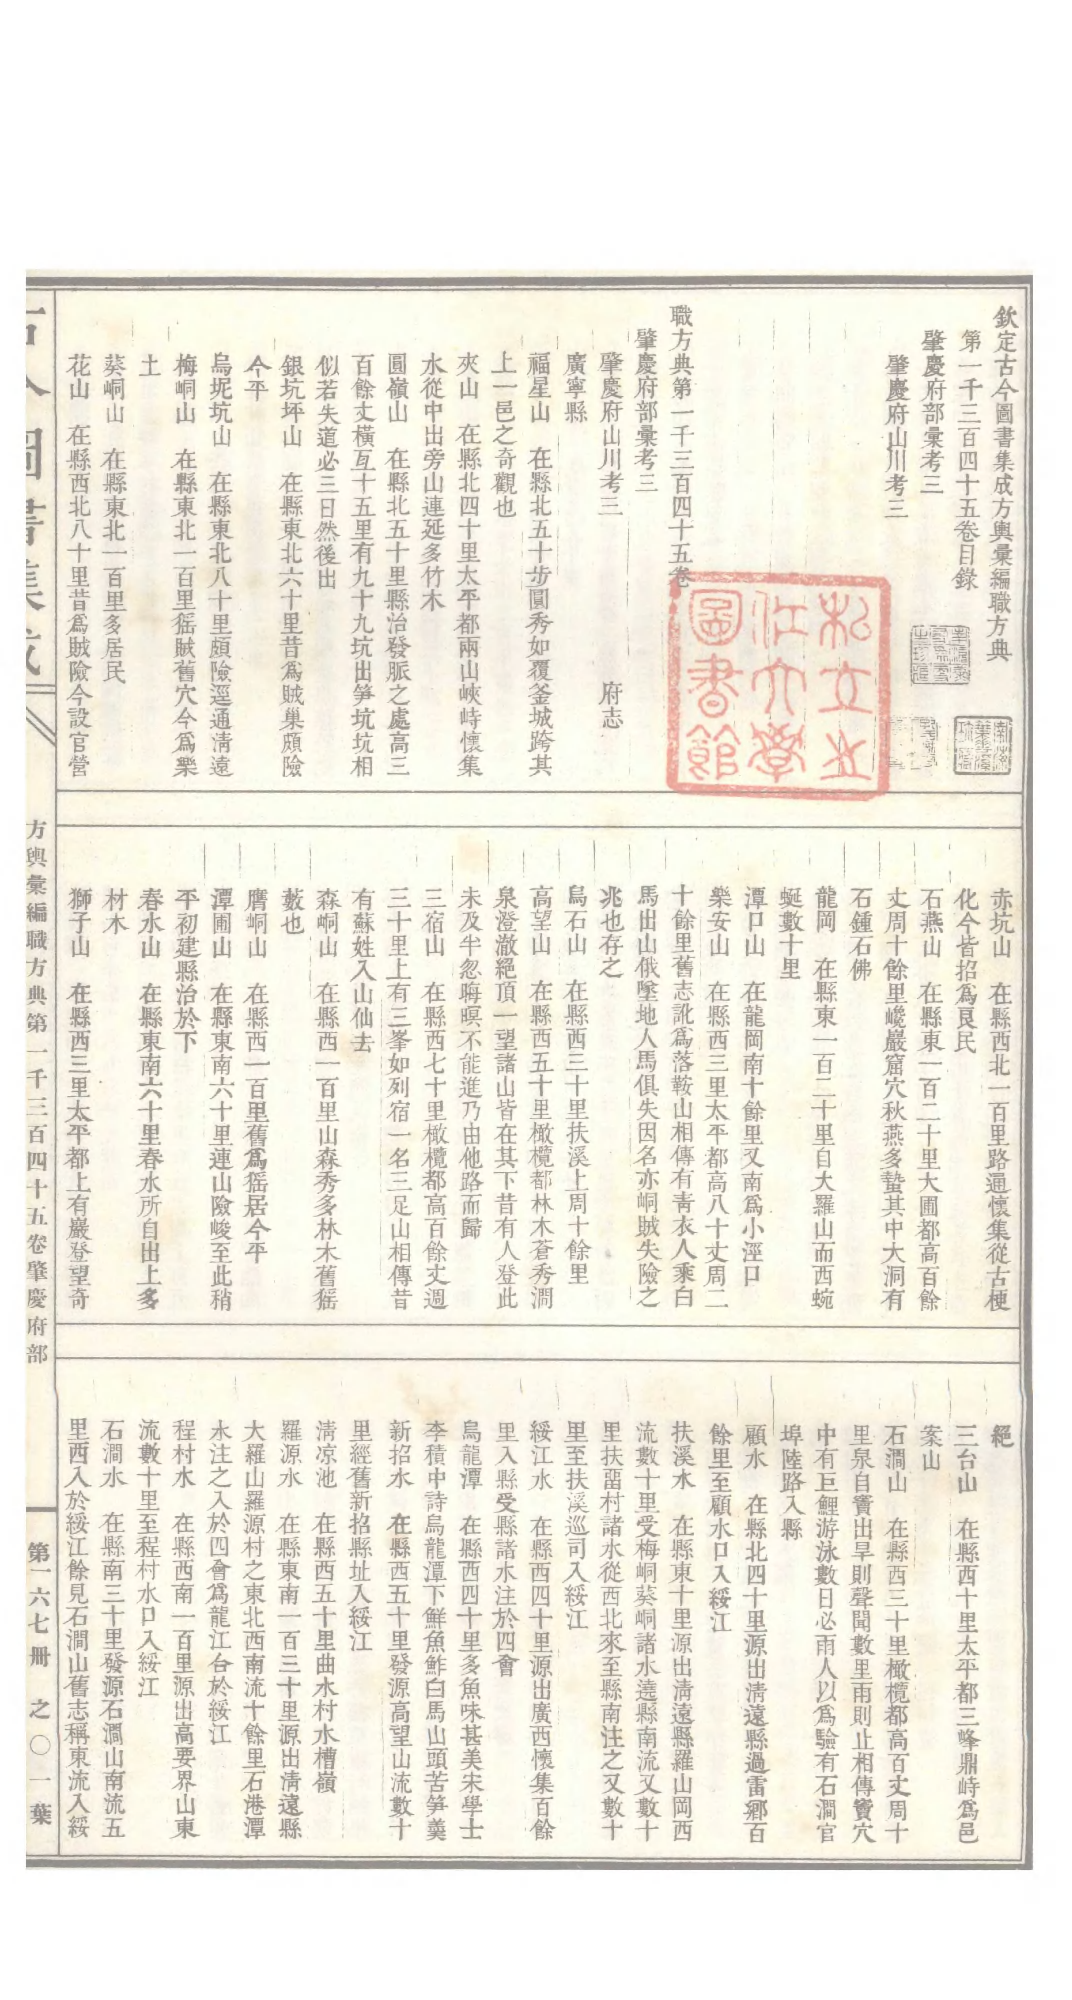 欽定古今圖書集成方輿彙編職方典
第一千三百四十五卷目錄
肇慶府部彙考三
肇慶府山川考三
職方典第一千三百四十五卷
肇慶府部彙考三
肇慶府山川考三 府志
廣寧縣
福星山 在縣北五十步圓秀如覆釜城跨其
上一邑之奇觀也
夾山 在縣北四十里太平都兩山峽峙懷集
水從中出旁山連延多竹木
圓嶺山 在縣北五十里縣治發脈之處高三
百餘丈橫亙十五里有九十九坑出筍坑坑相
似若失道必三日然後出
銀坑坪山 在縣東北六十里昔爲賊巢頗險
今平
烏坭坑山 在縣東北八十里頗險逕通淸遠
梅峒山 在縣東北一百里猺賊舊穴今爲樂
土
葵峒山 在縣東北一百里多居民
花山 在縣西北八十里昔爲賊險今設官營
赤坑山 在縣西北一百里路逼懷集從古梗
化今皆招爲良民
石燕山 在縣東一百二十里大圃都高百餘
丈周十餘里巉巖窟穴秋燕多蟄其中大洞有
石鍾石佛
龍岡 在縣東一百二十里自大羅山而西蜿
蜒數十里
潭口山 在龍岡南十餘里又南爲小逕口
樂安山 在縣西三里太平都高八十丈周二
十餘里舊志訛爲落鞍山相傳有靑衣人乘白
馬出山俄墜地人馬俱失因名亦峒賊失險之
兆也存之
烏石山 在縣西三十里扶溪上周十餘里
高望山 在縣西五十里橄欖都林木蒼秀澗
泉澄澈絕頂一望諸山皆在其下昔有人登此
未及半忽晦暝不能進乃由他路而歸
三宿山 在縣西七十里橄欖都高百餘丈週
三十里上有三峯如列宿一名三足山相傳昔
有蘇姓入山仙去
森峒山 在縣西一百里山森秀多林木舊猺
藪也
膺峒山 在縣西一百里舊爲猺居今平
潭圃山 在縣東南六十里連山險峻至此稍
平初建縣治於下
春水山 在縣東南六十里春水所自出上多
材木
獅子山 在縣西三里太平都上有巖登望奇
絕
三台山 在縣西十里太平都三峰鼎峙爲邑
案山
石澗山 在縣西三十里橄欖都高百丈周十
里泉自竇出旱則聲聞數里雨則止相傳竇穴
中有巨鯉游泳數日必雨人以爲驗有石澗官
埠陸路入縣
顧水 在縣北四十里源出淸遠縣過雷鄉百
餘里至顧水口入綏江
扶溪水 在縣東十里源出淸遠縣羅山岡西
流數十里受梅峒葵峒諸水遶縣南流又數十
里扶畱村諸水從西北來至縣南注之又數十
里至扶溪巡司入綏江
綏江水 在縣西四十里源出廣西懷集百餘
里入縣受縣諸水注於四會
烏龍潭 在縣西四十里多魚味甚美宋學士
李積中詩烏龍潭下鮮魚鮓白馬山頭苦筍羹
新招水 在縣西五十里發源高望山流數十
里經舊新招縣址入綏江
淸凉池 在縣西五十里曲水村水槽嶺
羅源水 在縣東南一百三十里源出淸遠縣
大羅山羅源村之東北西南流十餘里石港潭
水注之入於四會爲龍江合於綏江
程村水 在縣西南一百里源出高要界山東
流數十里至程村水口入綏江
石澗水 在縣南三十里發源石澗山南流五
里西入於綏江餘見石澗山舊志稱東流入綏
古今圖書集成
方輿彙編職方典第一千三百四十五卷肇慶府部
第一六七冊 之〇一葉